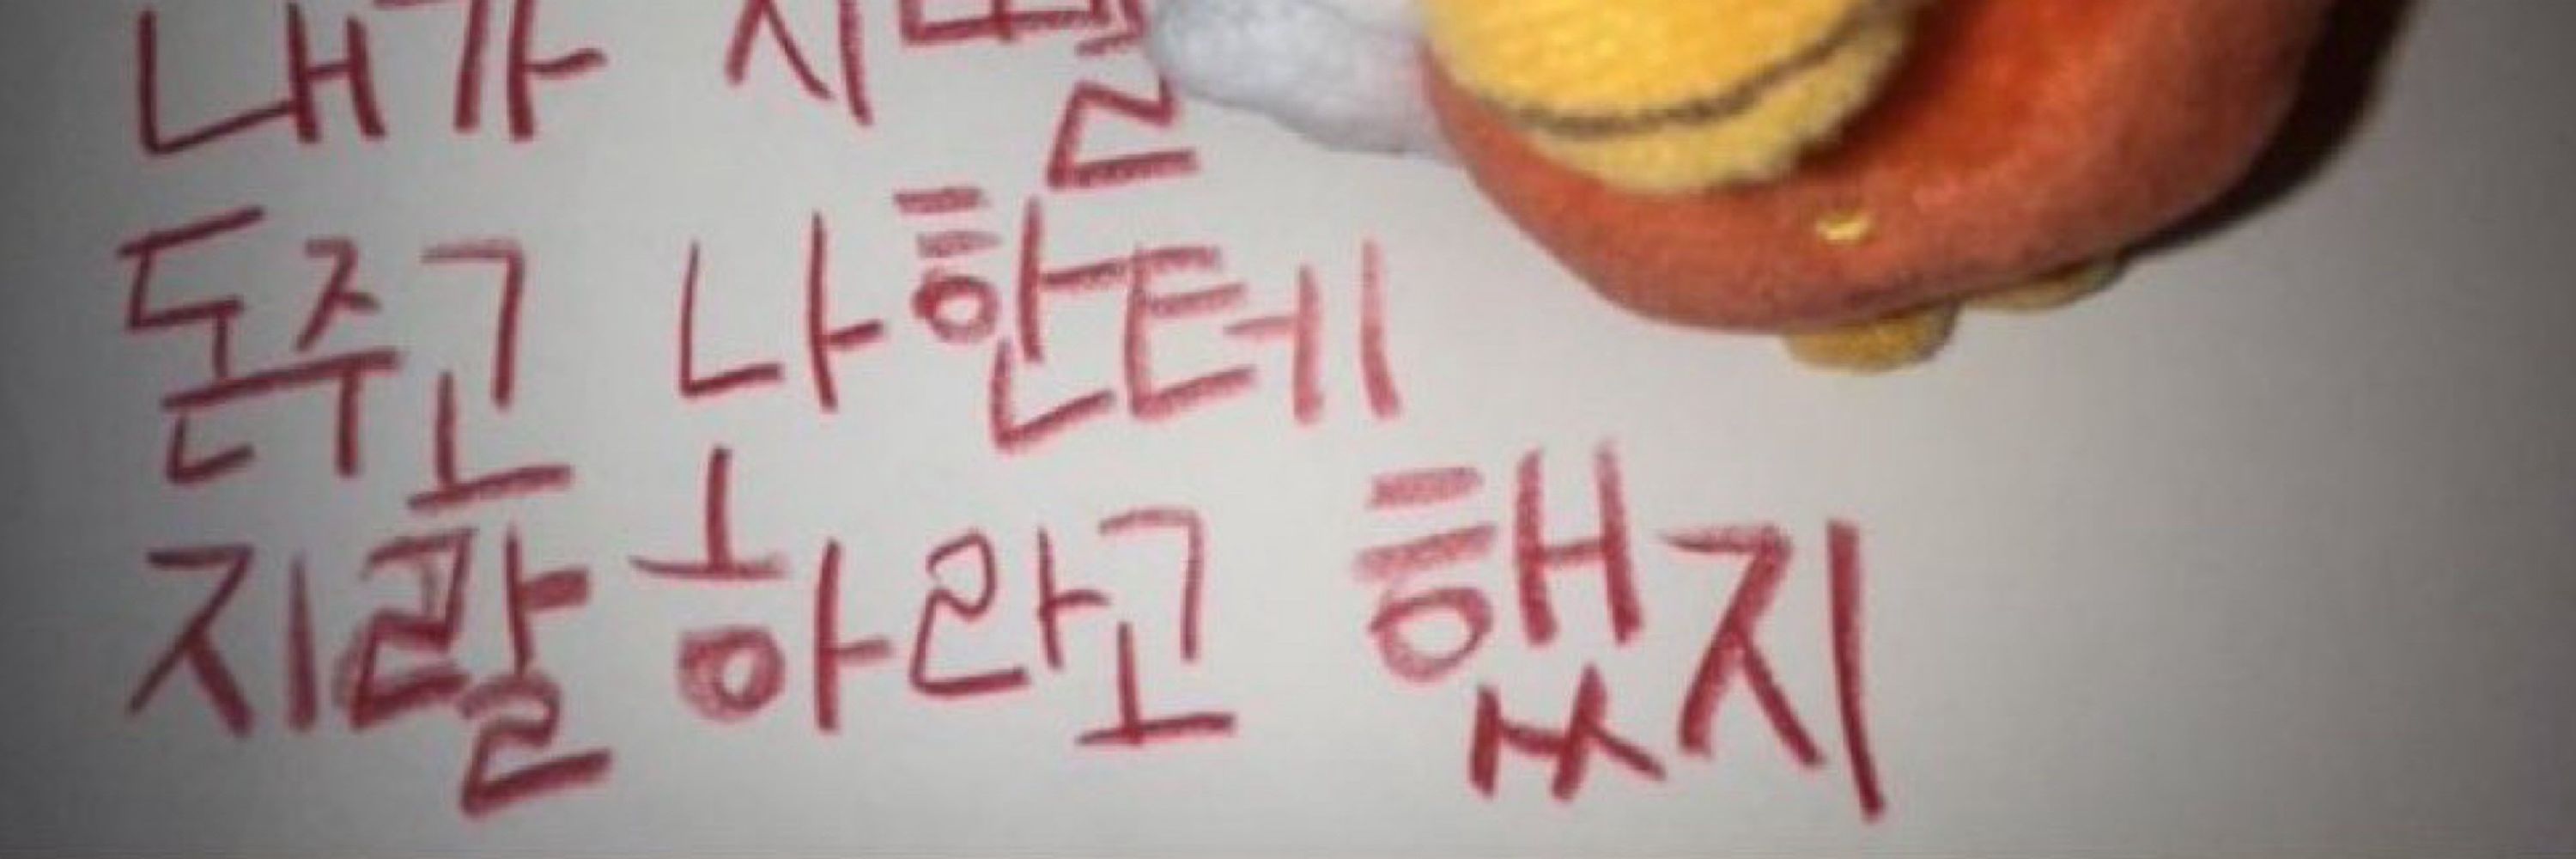 내가
돈주고 나한테
지랄하라고 했지